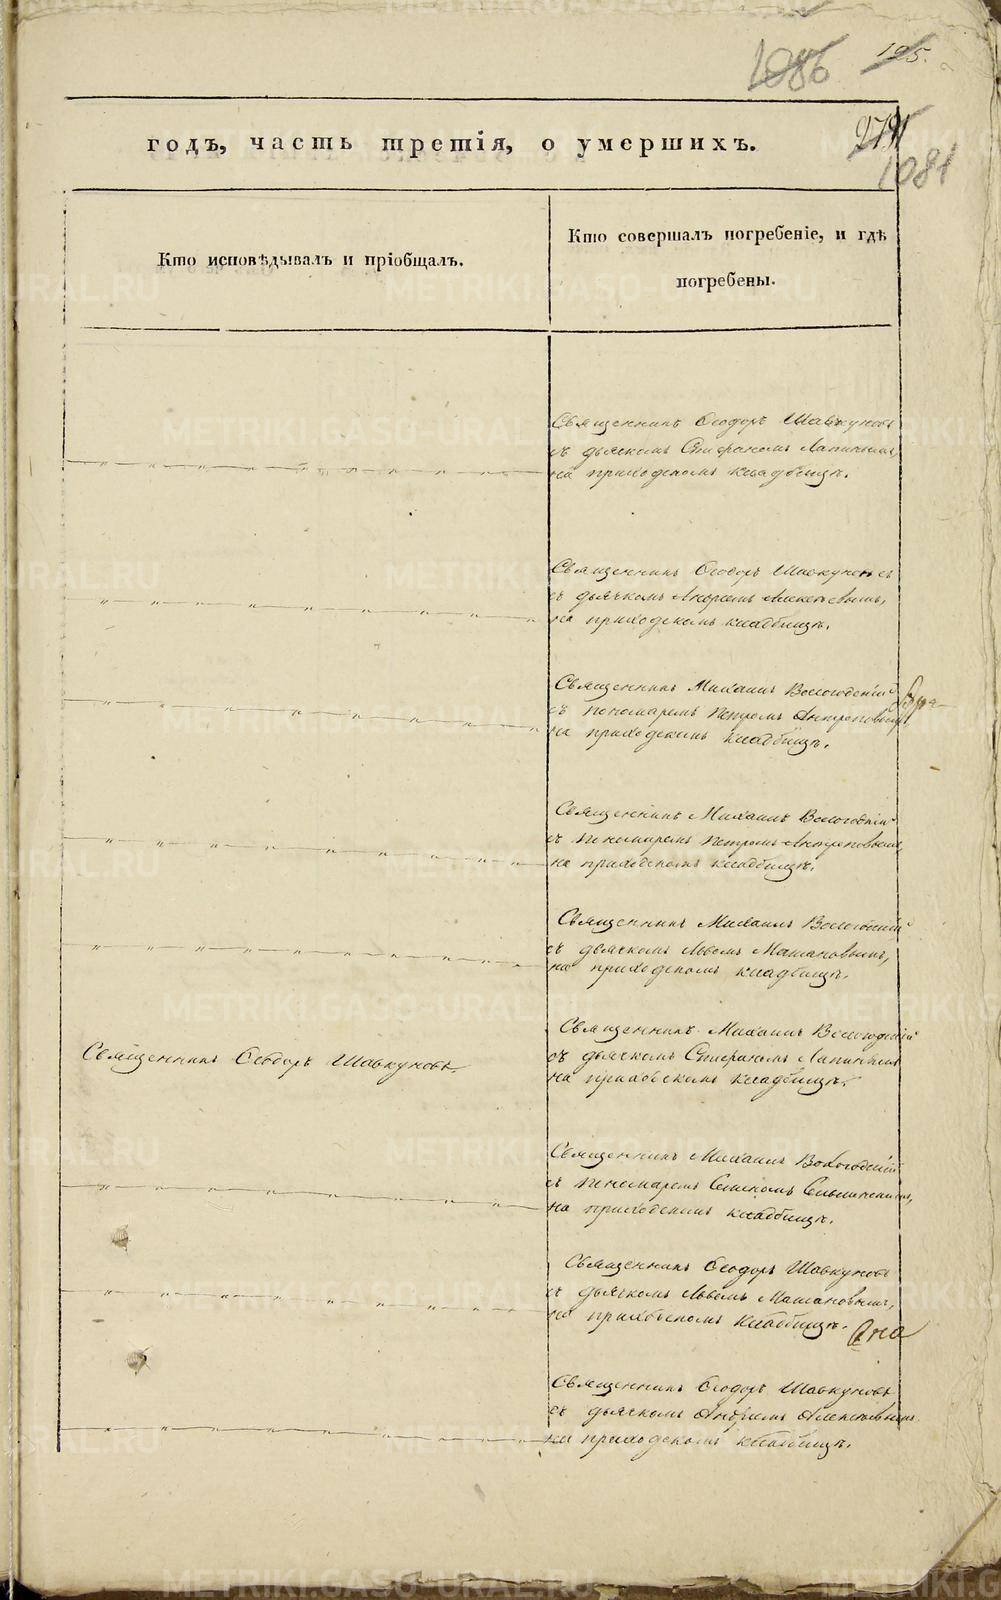 1086
125.
годъ, часть третія, о умершихъ.
1081
Кто исповѣдывалъ и пріобщалъ.
Кто совершалъ погребеніе, и гдѣ
погребены.
Священникъ Ѳеодоръ Шавкуновъ
съ дьячкомъ Стефаномъ Лапинымъ,
на приходскомъ кладбищѣ.
Священникъ Ѳеодоръ Шавкуновъ
съ дьячкомъ Андреемъ Алексѣевымъ,
на приходскомъ кладбищѣ.
Священникъ Михаилъ Вологодскій
съ пономаремъ Петромъ Антроповымъ
на приходскомъ кладбищѣ.
Священникъ Михаилъ Вологодскій
съ пономаремъ Петромъ Антроповымъ
на приходскомъ кладбищѣ.
Священникъ Михаилъ Вологодскій
съ дьячкомъ Львомъ
на приходскомъ кладбищѣ.
Священникъ Ѳеодоръ Шавкуновъ.
Священникъ Михаилъ Вологодскій
съ дьячкомъ Стефаномъ Лапинымъ
на приходскомъ кладбищѣ.
Священникъ Михаилъ Вологодскій
съ пономаремъ
на приходскомъ кладбищѣ.
Священникъ Ѳеодоръ Шавкуновъ
съ дьячкомъ Львомъ
на приходскомъ кладбищѣ.
Священникъ Ѳеодоръ Шавкуновъ
съ дьячкомъ Андреемъ Алексѣевымъ
на приходскомъ кладбищѣ.
METRIKI.GASO-URAL.RU